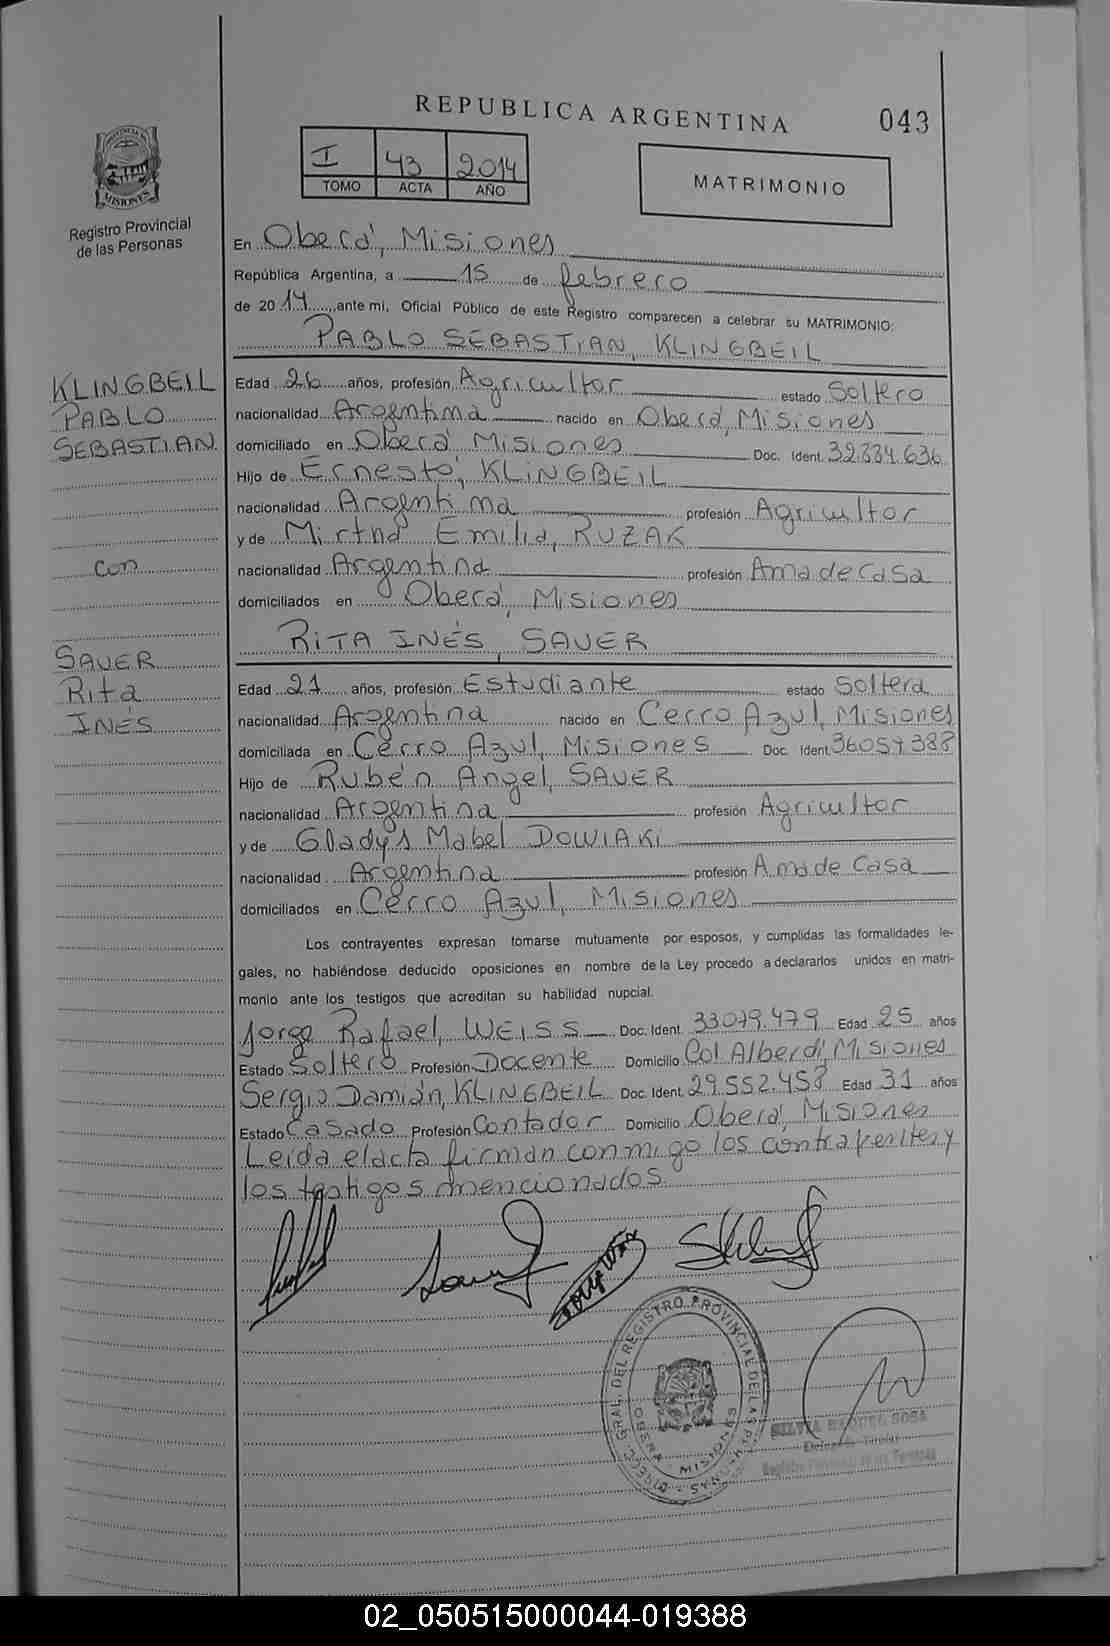 REPUBLICA ARGENTINA
043
I 43 2.014
TOMO ACTA AÑO
MATRIMONIO
PROVINCIA DE
MISIONES
Registro Provincial
de las Personas
En Oberá, Misiones
República Argentina, a 15 de febrero
de 2014, ante mi, Oficial Público de este Registro comparecen a celebrar su MATRIMONIO:
PABLO SEBASTIAN, KLINGBEIL
KLINGBEIL
PABLO
SEBASTIAN
con
SAUER
Rita
INÉS
Edad 26 años, profesión Agricultor estado Soltero
nacionalidad Argentina nacido en Oberá, Misiones
domiciliado en Oberá Misiones Doc. Ident. 32.834.636
Hijo de Ernesto, KLINGBEIL
nacionalidad Argentina profesión Agricultor
y de Mirtha Emilia, RUZAK
nacionalidad Argentina profesión Ama de Casa
domiciliados en Oberá, Misiones
RITA INÉS, SAUER
Edad 21 años, profesión Estudiante estado Soltera
nacionalidad Argentina nacido en Cerro Azul, Misiones
domiciliada en Cerro Azul, Misiones Doc. Ident. 36057388
Hijo de Rubén Angel, SAUER
nacionalidad Argentina profesión Agricultor
y de Gladys Mabel DOWIAKI
nacionalidad Argentina profesión Ama de Casa
domiciliados en Cerro Azul, Misiones
Los contrayentes expresan tomarse mutuamente por esposos, y cumplidas las formalidades le-
gales, no habiéndose deducido oposiciones en nombre de la Ley procedo a declararlos unidos en matri-
monio ante los testigos que acreditan su habilidad nupcial.
Jorge Rafael, WEISS Doc. Ident. 33079.479 Edad 25 años
Estado Soltero Profesión Docente Domicilio Col Alberdi, Misiones
Sergio Damián, KLINGBEIL Doc. Ident. 29.552.453 Edad 31 años
Estado Casado Profesión Contador Domicilio Oberá, Misiones
Leida el acta firman conmigo los contrayentes y
los testigos mencionados.
DIRECC. GRAL. DEL REGISTRO PROVINCIAL DE LAS PERSONAS
OBERA MISIONES
SILVIA RAQUEL SOSA
02_050515000044-019388